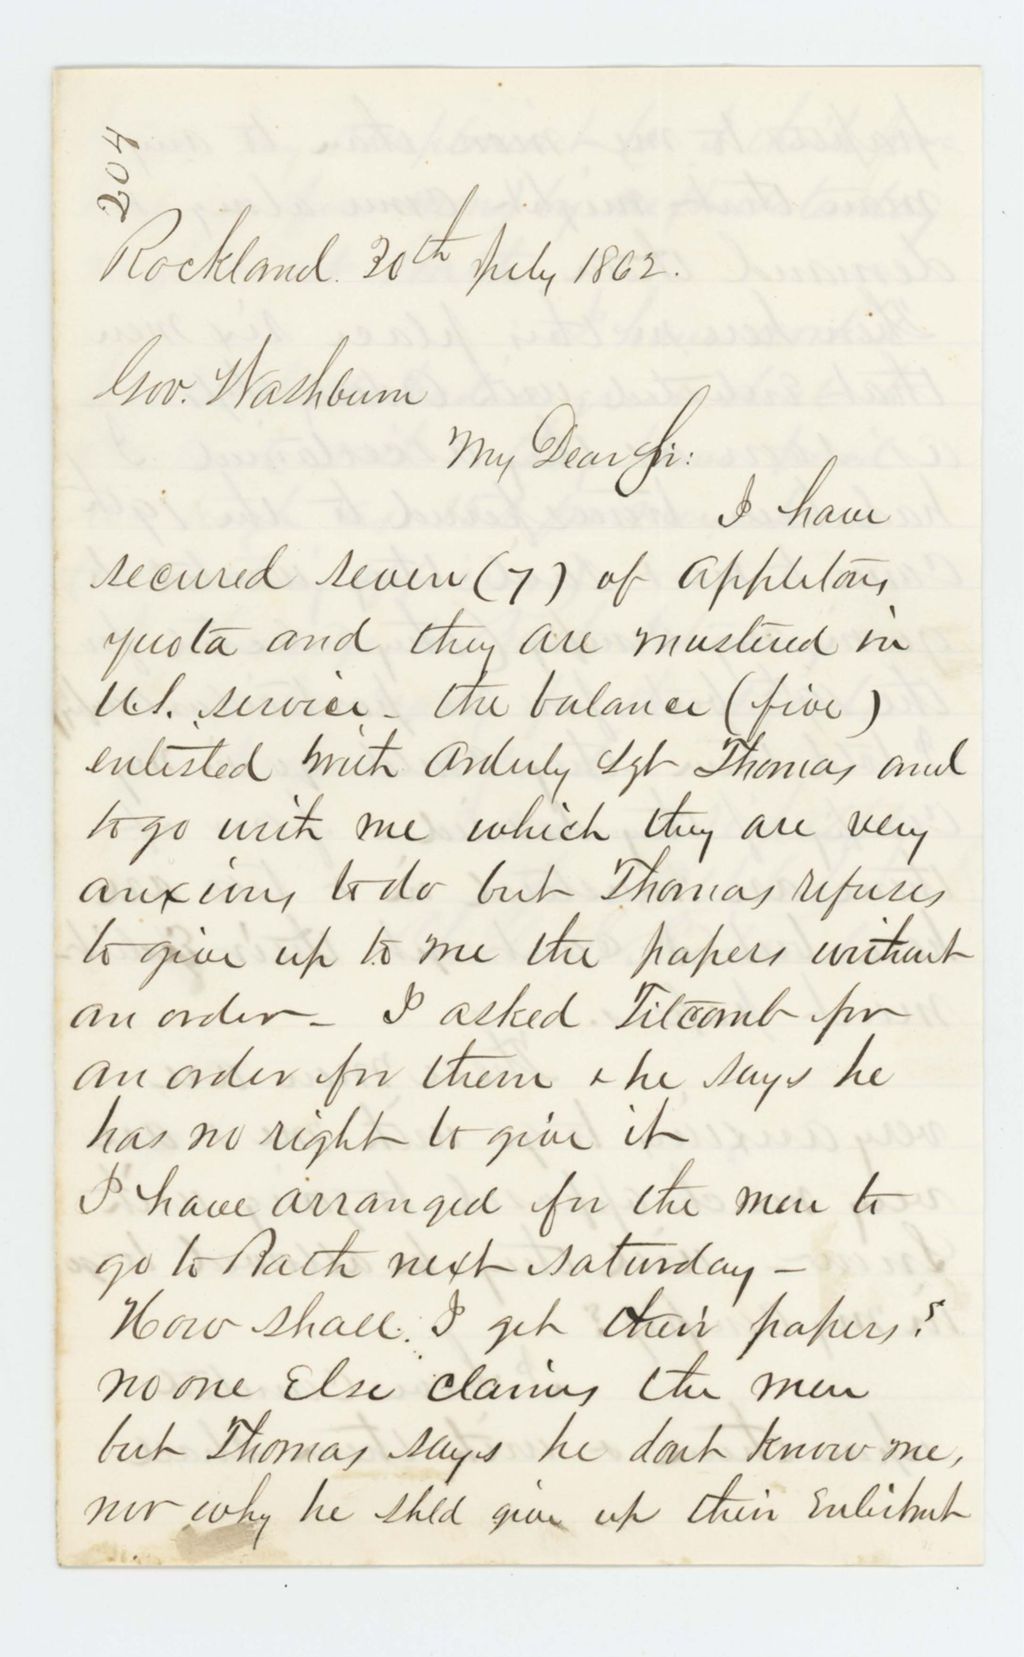 204
Rockland. 30th July 1862.
Gov. Washburn
My Dear Sir:
I have
secured seven (7) of Appletons
quota and they are mustered in
U.S. service - the balance (five)
enlisted with Orderly Sgt Thomas and
to go with me which they are very
anxious to do but Thomas refuses
to give up to me the papers without
an order - I asked Titcomb for
an order for them & he says he
has no right to give it
I have arranged for the men to
go to Bath next Saturday -
How shall I get their papers?
no one Else claims the men
but Thomas says he dont know me,
nor why he shld give up their Enlistmt